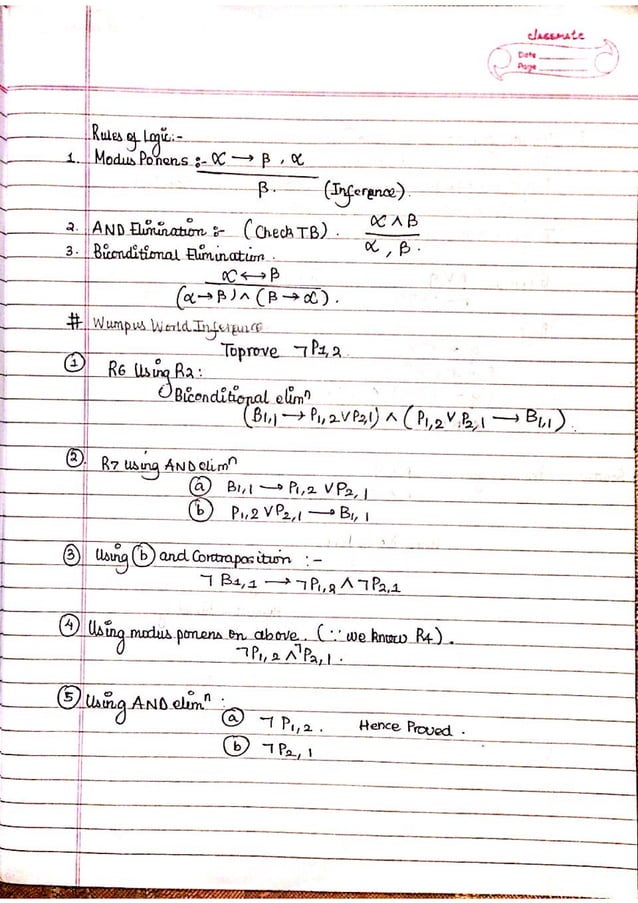 classmate
Date
Page
Rules of Logic:-
1. Modus Ponens :- α → β , α
β. (Inference)
2. AND Elimination :- (Check TB). α ∧ β
α , β.
3. Biconditional Elimination.
α ↔ β
(α → β) ∧ (β → α).
# Wumpus World Inference
To prove ¬P1,2
① R6 Using R2:
Biconditional elimⁿ
(B1,1 → P1,2 ∨ P2,1) ∧ (P1,2 ∨ P2,1 → B1,1)
② R7 using AND elimⁿ
ⓐ B1,1 → P1,2 ∨ P2,1
ⓑ P1,2 ∨ P2,1 → B1,1
③ Using ⓑ and Contraposition :-
¬B1,1 → ¬P1,2 ∧ ¬P2,1
④ Using modus ponens on above. (∵ we know R4).
¬P1,2 ∧ ¬P2,1.
⑤ Using AND elimⁿ :
ⓐ ¬P1,2. Hence Proved.
ⓑ ¬P2,1